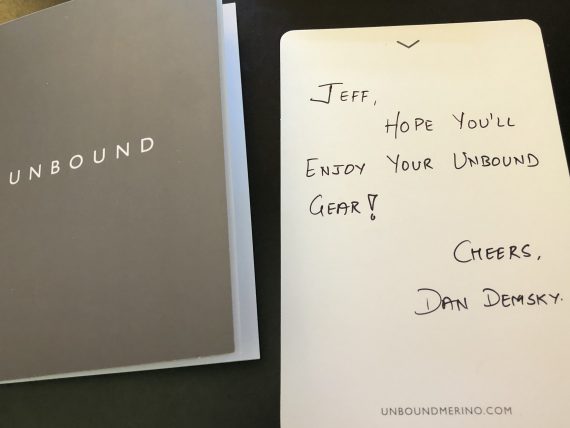 UNBOUND
JEFF,
HOPE YOU'LL
ENJOY YOUR UNBOUND
GEAR!
CHEERS,
DAN DEMSKY.
UNBOUNDMERINO.COM